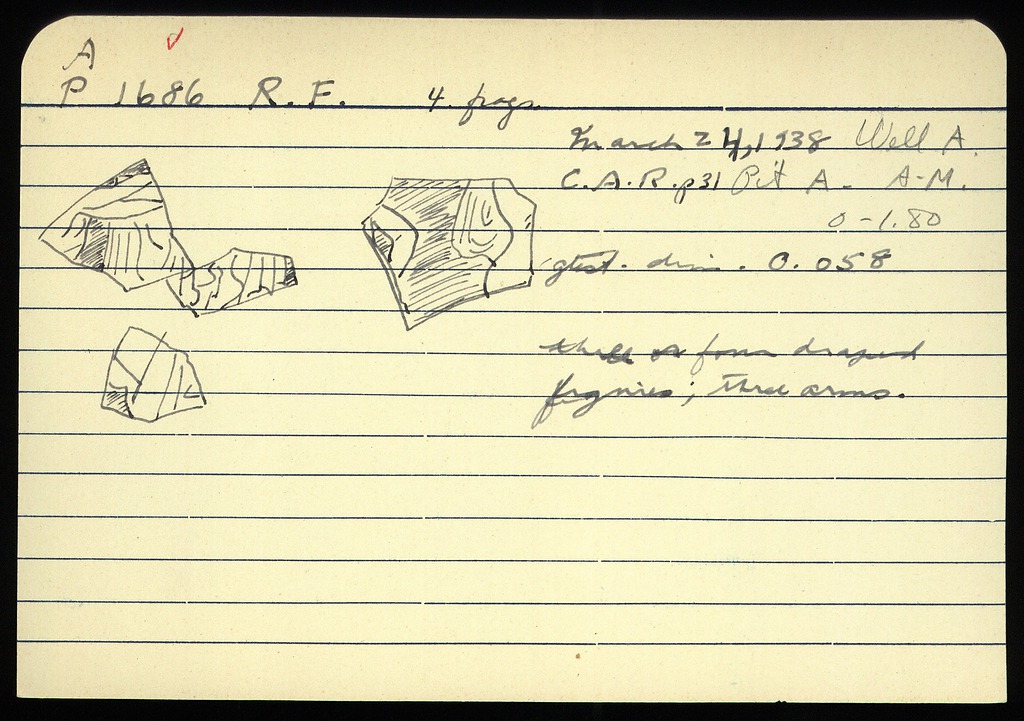 A
P 1686 R.F. 4 frags.
March 24, 1938 Well A.
C.A.R. p31 Pit A. A-M.
0-1.80
gtest. dim. 0.058
three or four draped
figures; three arms.